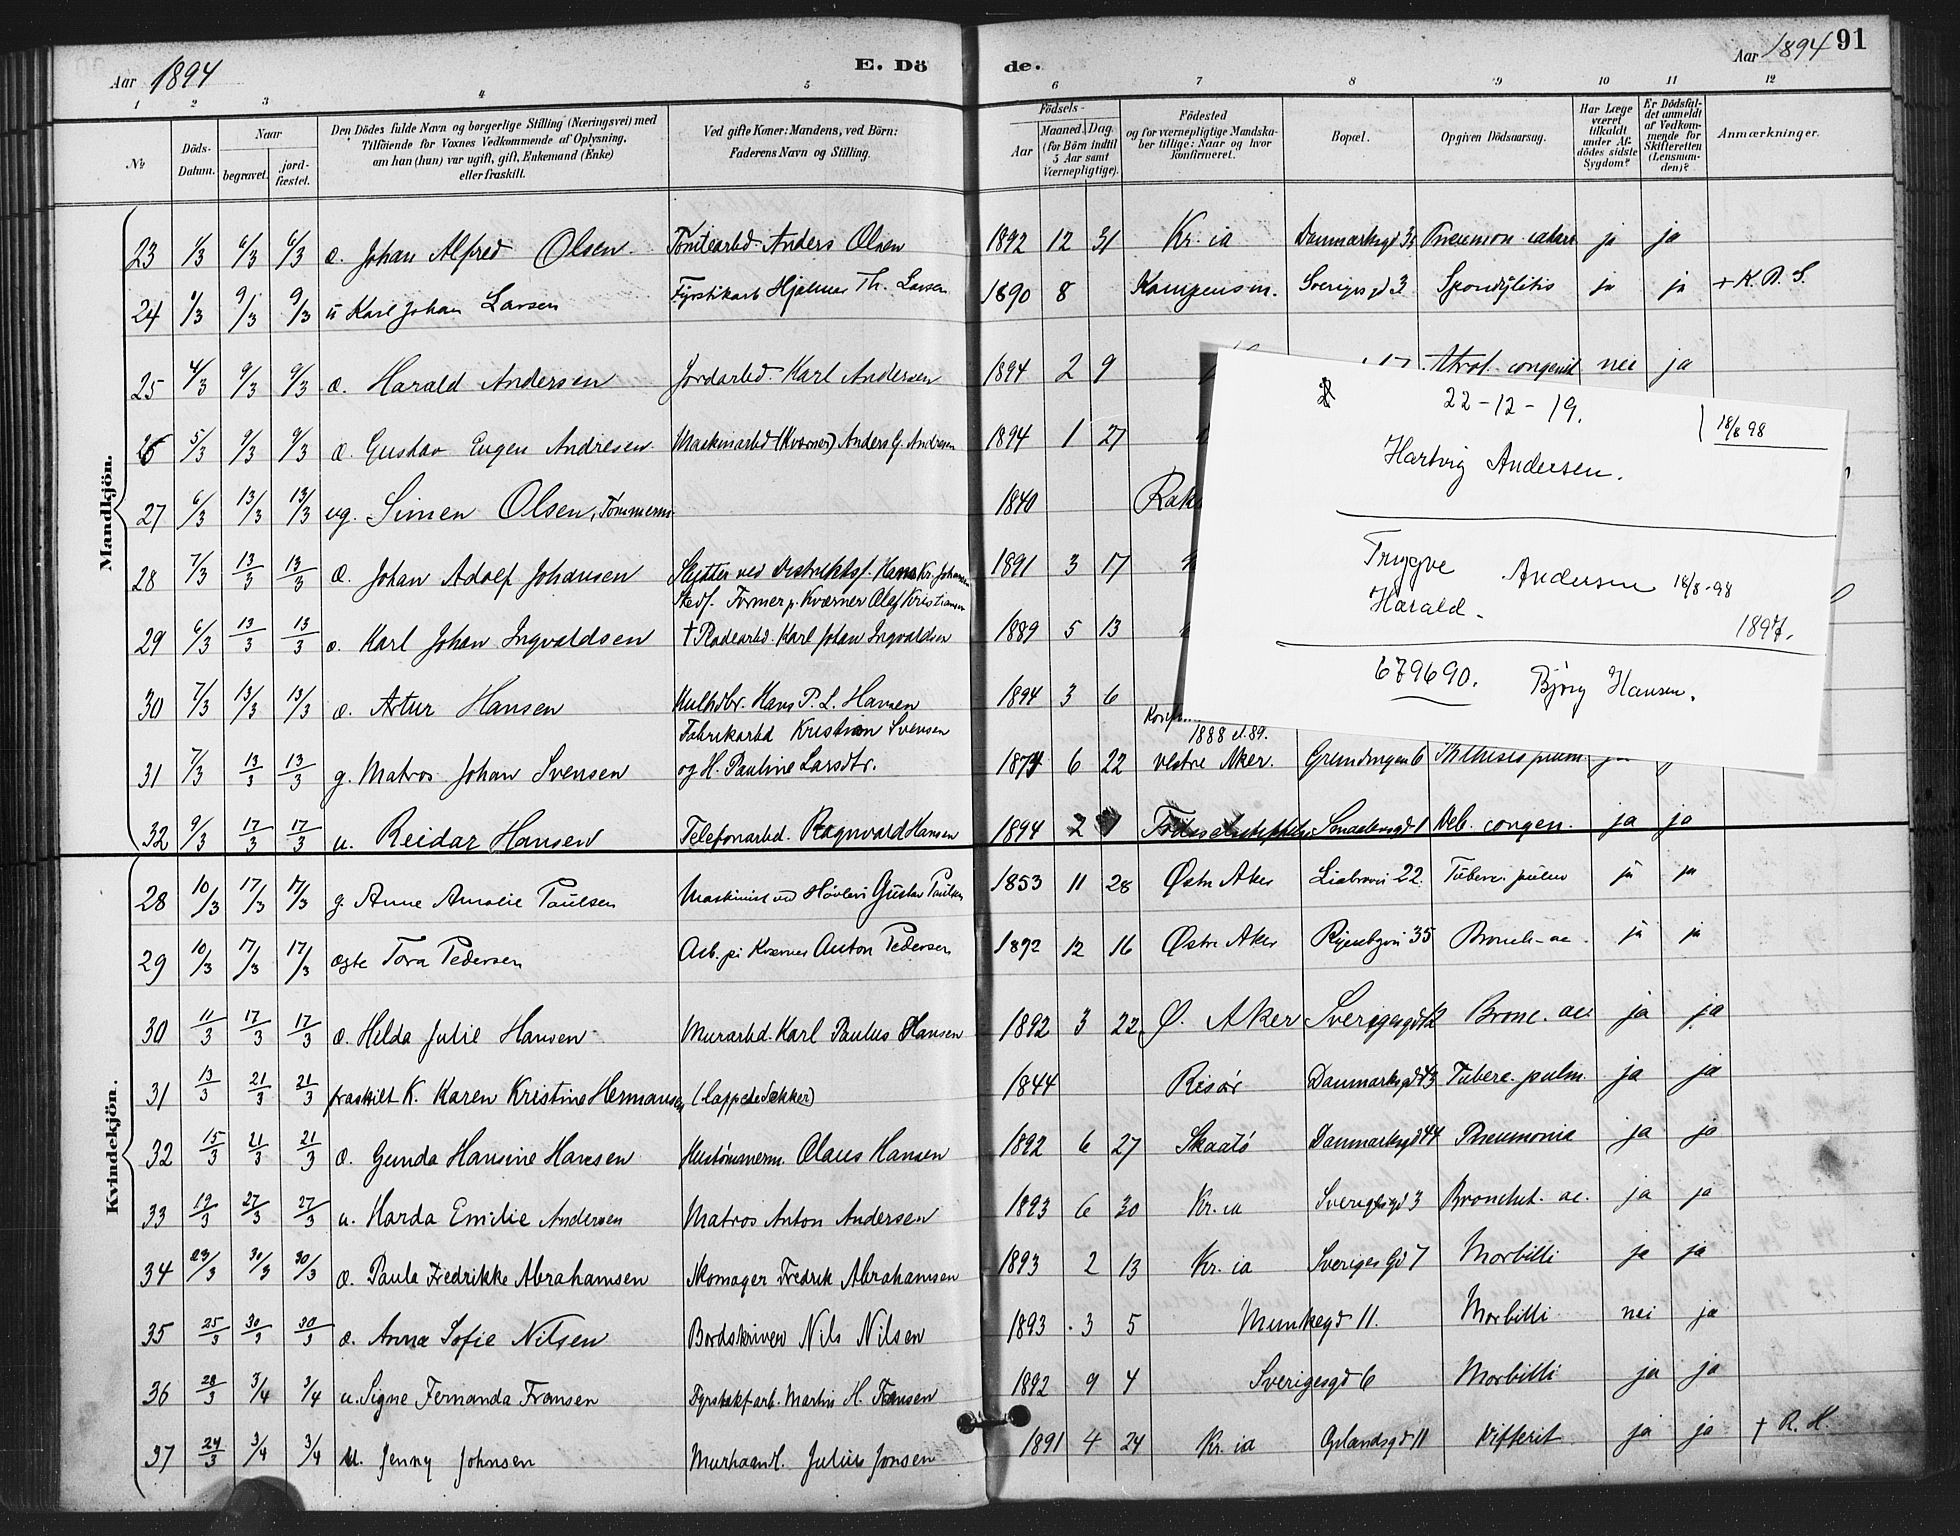 Aar 1894
E. Dö de.
Aar 1894 91
1 2 3 4 5 6 7 8 9 10 11 12
No
Döds-Datum.
Naar
begravet.
jord-fæstet.
Den Dödes fulde Navn og borgerlige Stilling (Næringsvei) med
Tilföiende for Voxnes Vedkommende af Oplysning,
om han (hun) var ugift, gift, Enkemand (Enke)
eller fraskilt.
Ved gifte Koner: Mandens, ved Börn:
Faderens Navn og Stilling.
Födsels-
Aar
Maaned. Dag.
(for Börn indtil
5 Aar samt
Værnepligtige).
Födested
og for værnepligtige Mandska-
ber tillige: Naar og hvor
konfirmeret.
Bopæl.
Opgiven Dödsaarsag.
Har Læge
været
tilkaldt
under Af-
dödes sidste
Sygdom?
Er Dödsfal-
det anmeldt
af Vedkom-
mende for
Skifteretten
(Lensman-
den)?
Anmærkninger.
Mandkjön.
23 1/3 6/3 6/3 æ. Johan Alfred Olsen Tomtearbd. Anders Olsen 1892 12 31 Kr.ia Danmarksgd Pneumon. catarr ja ja
24 1/3 9/3 9/3 u Karl Johan Larsen Fyrstikarb Hjalmar Th. Larsen 1890 8 Kampensm. Sverigesgd 3 Spondylitis ja ja + K. B. S.
25 4/3 9/3 9/3 æ. Harald Andersen Jordarbd. Karl Andersen 1894 2 9 Atrof. congenit nei ja
26 5/3 9/3 9/3 æ. Gustav Eugen Andresen Maskinarbd (Kværner) Anders G. Andresen 1894 1 27
27 6/3 13/3 13/3 ug. Simen Olsen, Tømmerm. 1840 Rak
28 7/3 13/3 13/3 æ. Johan Adolf Johansen Flytter ved Distriktsf. Hans Kr. Johansen 1891 3 17
Stedf. Former p. Kværner Olef Kristiansen
29 6/3 13/3 13/3 æ. Karl Johan Ingvaldsen † Pladearbd. Karl Johan Ingvaldsen 1889 5 13
30 7/3 13/3 13/3 æ. Artur Hansen Kulhdbr. Hans P. L. Hansen 1894 3 6
Fabrikarbd Kristian Svensen 1888 el. 89.
31 7/3 13/3 13/3 g. Matros Johan Svensen og H. Pauline Larsdtr. 1874 6 22 vestre Aker. Grundingen 6 Phthisis pulm.
32 9/3 17/3 17/3 u. Reidar Hansen Telefonarbd. Ragnvald Hansen 1894 2 Fødselsstiftelsen Smaalensgd 1 Deb. congen. ja ja
22-12-19.
18/8 98
Hartvig Andersen.
Trygve Andersen 18/8-98
Harald. 1897.
679690. Bjørg Hansen.
Kvindekjön.
28 10/3 17/3 17/3 g. Anne Amalie Paulsen Maskinist ved Høvleri Gustav Paulsen 1853 11 28 Østre Aker 22. Tuberc. pulm ja ja
29 10/3 17/3 17/3 ægte Tora Pedersen Arb. på Kværner Anton Pedersen 1892 12 16 Østre Aker 35 Bronch. ac. ja ja
30 11/3 17/3 17/3 æ. Helda Julie Hansen Murarbd. Karl Paulus Hansen 1892 3 22 Ø. Aker Sverigesgd 12 Bronc. ac. ja ja
31 13/3 21/3 21/3 fraskilt K. Karen Kristine Hermansen (lappede Sække) 1844 Risør Danmarksgd 43 Tuberc. pulm. ja ja
32 15/3 21/3 21/3 æ. Gunda Hansine Hansen Hustømmerm. Olaus Hansen 1892 6 27 Skaatø Danmarksgd 44 Pneumonia ja ja
33 19/3 27/3 27/3 u. Harda Emilie Andersen Matros Anton Andersen 1893 6 30 Kr.ia Sverigesgd 3 Bronchit. ac. ja ja
34 23/3 30/3 30/3 æ. Paula Fredrikke Abrahamsen Skomager Fredrik Abrahamsen 1893 2 13 Kr.ia Sveriges Gd 7 Morbilli ja ja
35 25/3 30/3 30/3 æ. Anna Sofie Nilsen Bordskriver Nils Nilsen 1893 3 5 Munkegd 11. Morbilli nei ja
36 28/3 3/4 3/4 u. Signe Fernanda Fransen Fyrstikfarb. Martin H. Fransen 1892 9 4 Sverigesgd 6 Morbilli ja ja
37 24/3 3/4 3/4 u. Jenny Johnsen Murhaandl. Julius Jonsen 1891 4 24 Kr.ia Oplandsgd 11 Difterit ja ja + R. H.